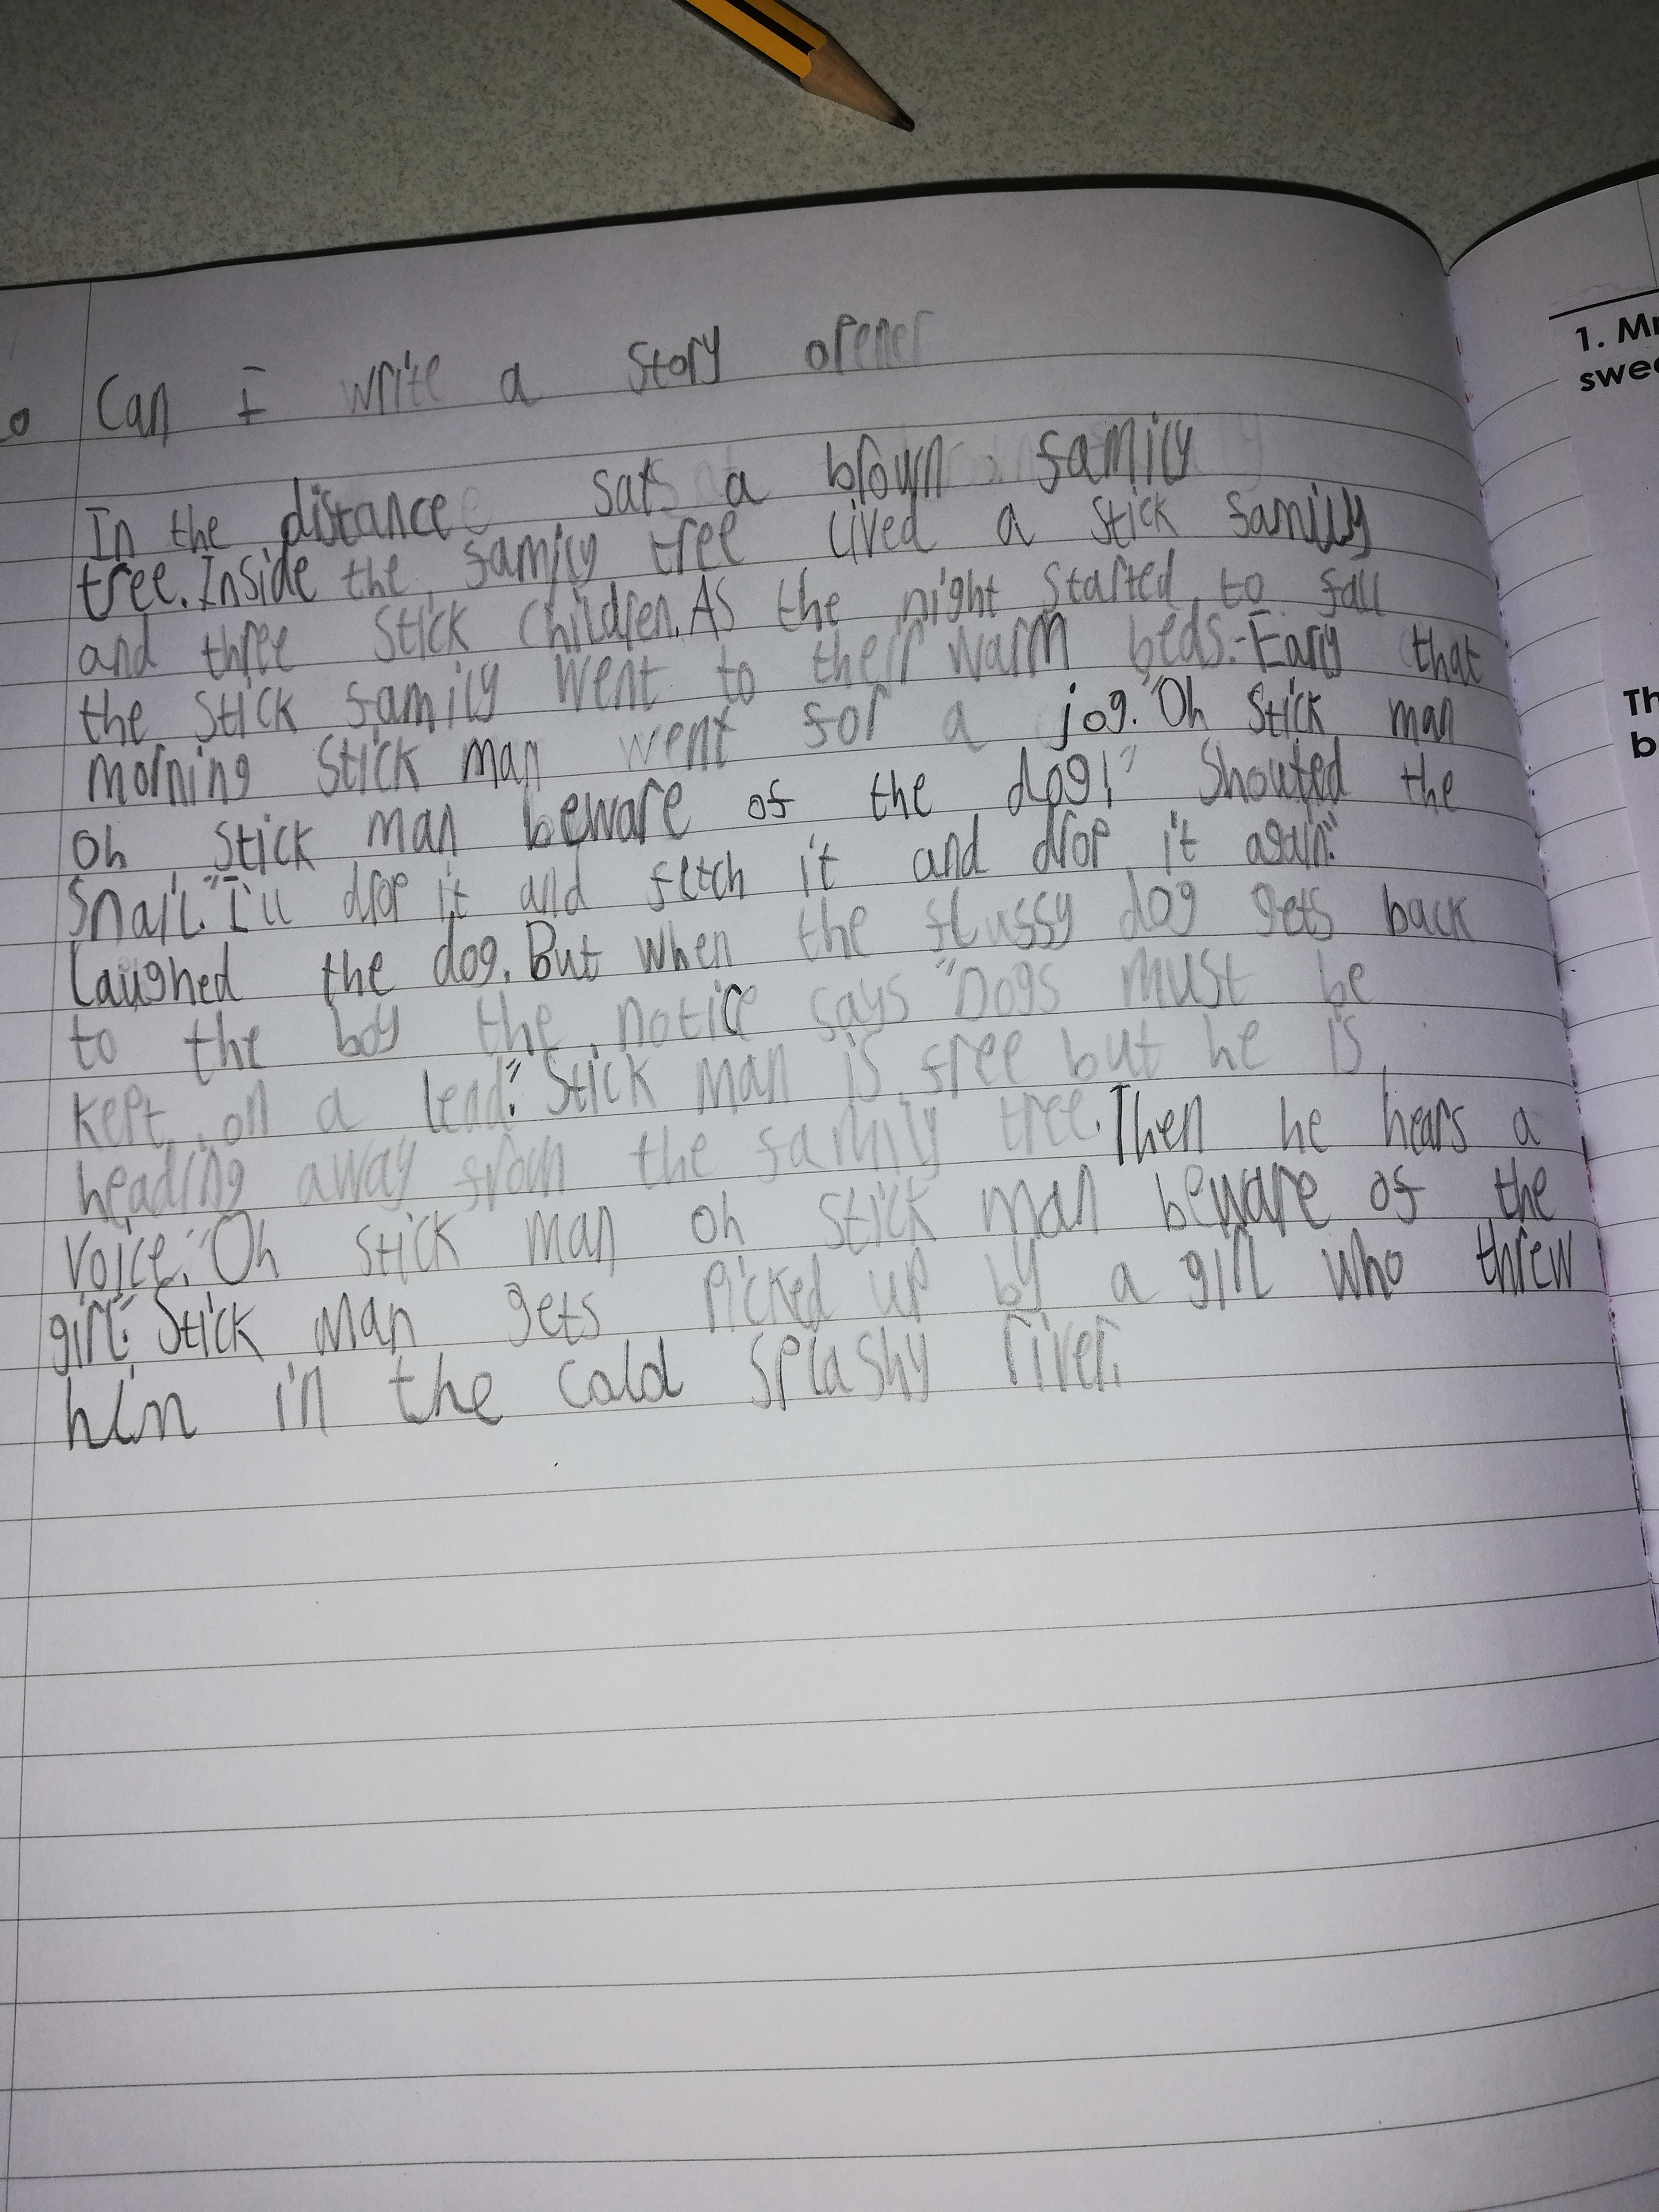 o Can I write a story opener
In the distance sats a brown family
tree. Inside the family tree lived a stick family
and three stick children. As the night started to fall
the stick family went to their warm beds. Eary that
morning stick man went for a jog. "Oh stick man
oh stick man beware of the dog!" shouted the
snail. "I'll drop it and fetch it and drop it again."
Laughed the dog. But when the fluffy dog gets back
to the boy the notice says "Dogs must be
kept on a lead." Stick man is free but he is
heading away from the family tree. Then he hears a
voice. "Oh stick man oh stick man beware of the
girl." Stick man gets picked up by a girl who threw
him in the cold splashy river.
1. Mr
swee
Th
b